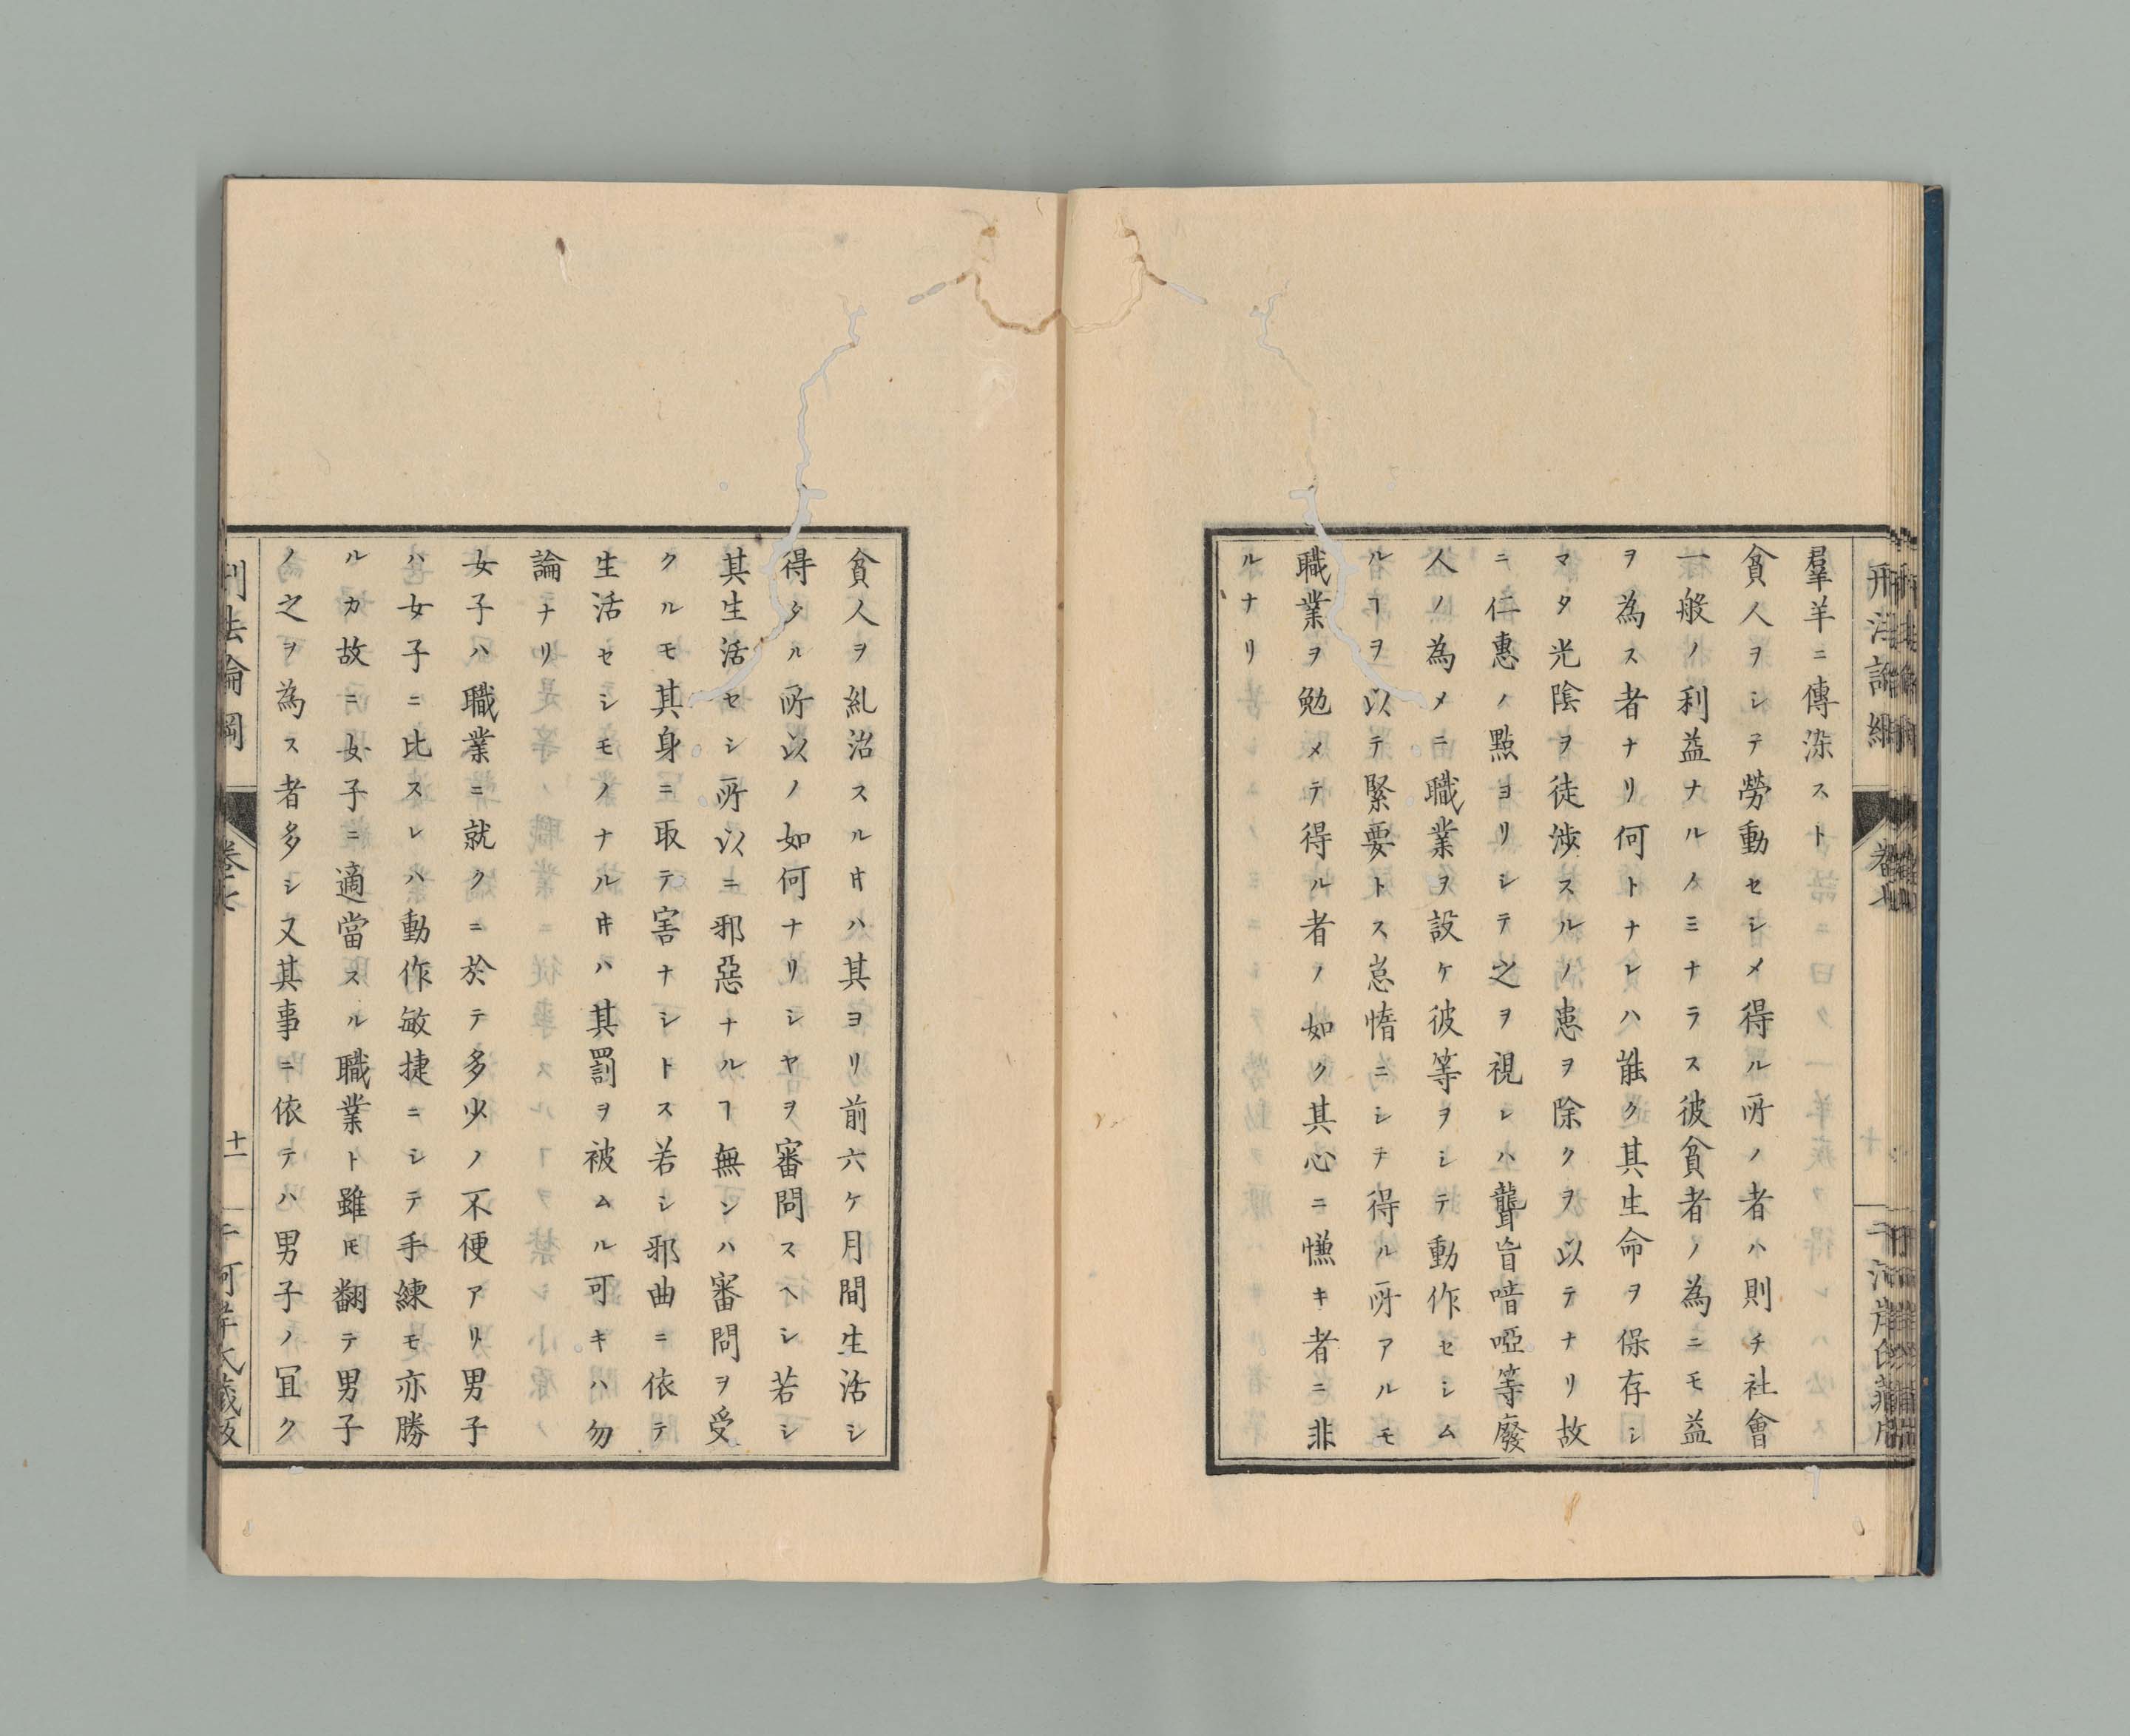 羣羊ニ傳染スト
貧人ヲシテ勞動セシメ得ル所ノ者ハ則チ社會
一般ノ利益ナルノミナラス彼貧者ノ為ニモ益
ヲ為ス者ナリ何トナレハ能ク其生命ヲ保存シ
マタ光陰ヲ徒渉スルノ患ヲ除クヲ以テナリ故
ニ仁惠ノ點ヨリシテ之ヲ視レハ聾盲喑啞等廢
人ノ為メニ職業ヲ設ケ彼等ヲシテ動作セシム
ルヿヲ以テ緊要トス怠惰ニシテ得ル所アルモ
職業ヲ勉メテ得ル者ノ如ク其心ニ慊キ者ニ非
ルナリ
卷七
貧人ヲ糺治スルㄐハ其ヨリ前六ケ月間生活シ
得タル所以ノ如何ナリシヤヲ審問スヘシ若シ
其生活セシ所以ニ邪惡ナルヿ無シハ審問ヲ受
クルモ其身ニ取テ害ナシトス若シ邪曲ニ依テ
生活セシモノナルㄐハ其罰ヲ被ムル可キハ勿
論ナリ
女子ハ職業ニ就クニ於テ多少ノ不便アリ男子
ハ女子ニ比スレハ動作敏捷ニシテ手練モ亦勝
ルカ故ニ女子ニ適當スル職業ト雖𪜈翻テ男子
ノ之ヲ為ス者多シ又其事ニ依テハ男子ノ冝ク
刑法論綱
卷七
十一